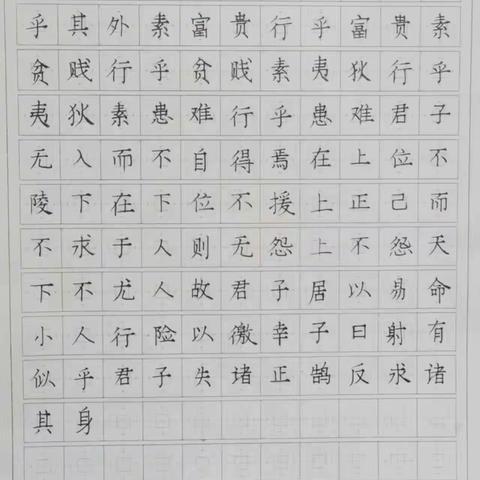 乎其外素富贵行乎富贵素
贫贱行乎贫贱素夷狄行乎
夷狄素患难行乎患难君子
无入而不自得焉在上位不
陵下在下位不援上正己而
不求于人则无怨上不怨天
下不尤人故君子居以易命
小人行险以徼幸子曰射有
似乎君子失诸正鹄反求诸
其身